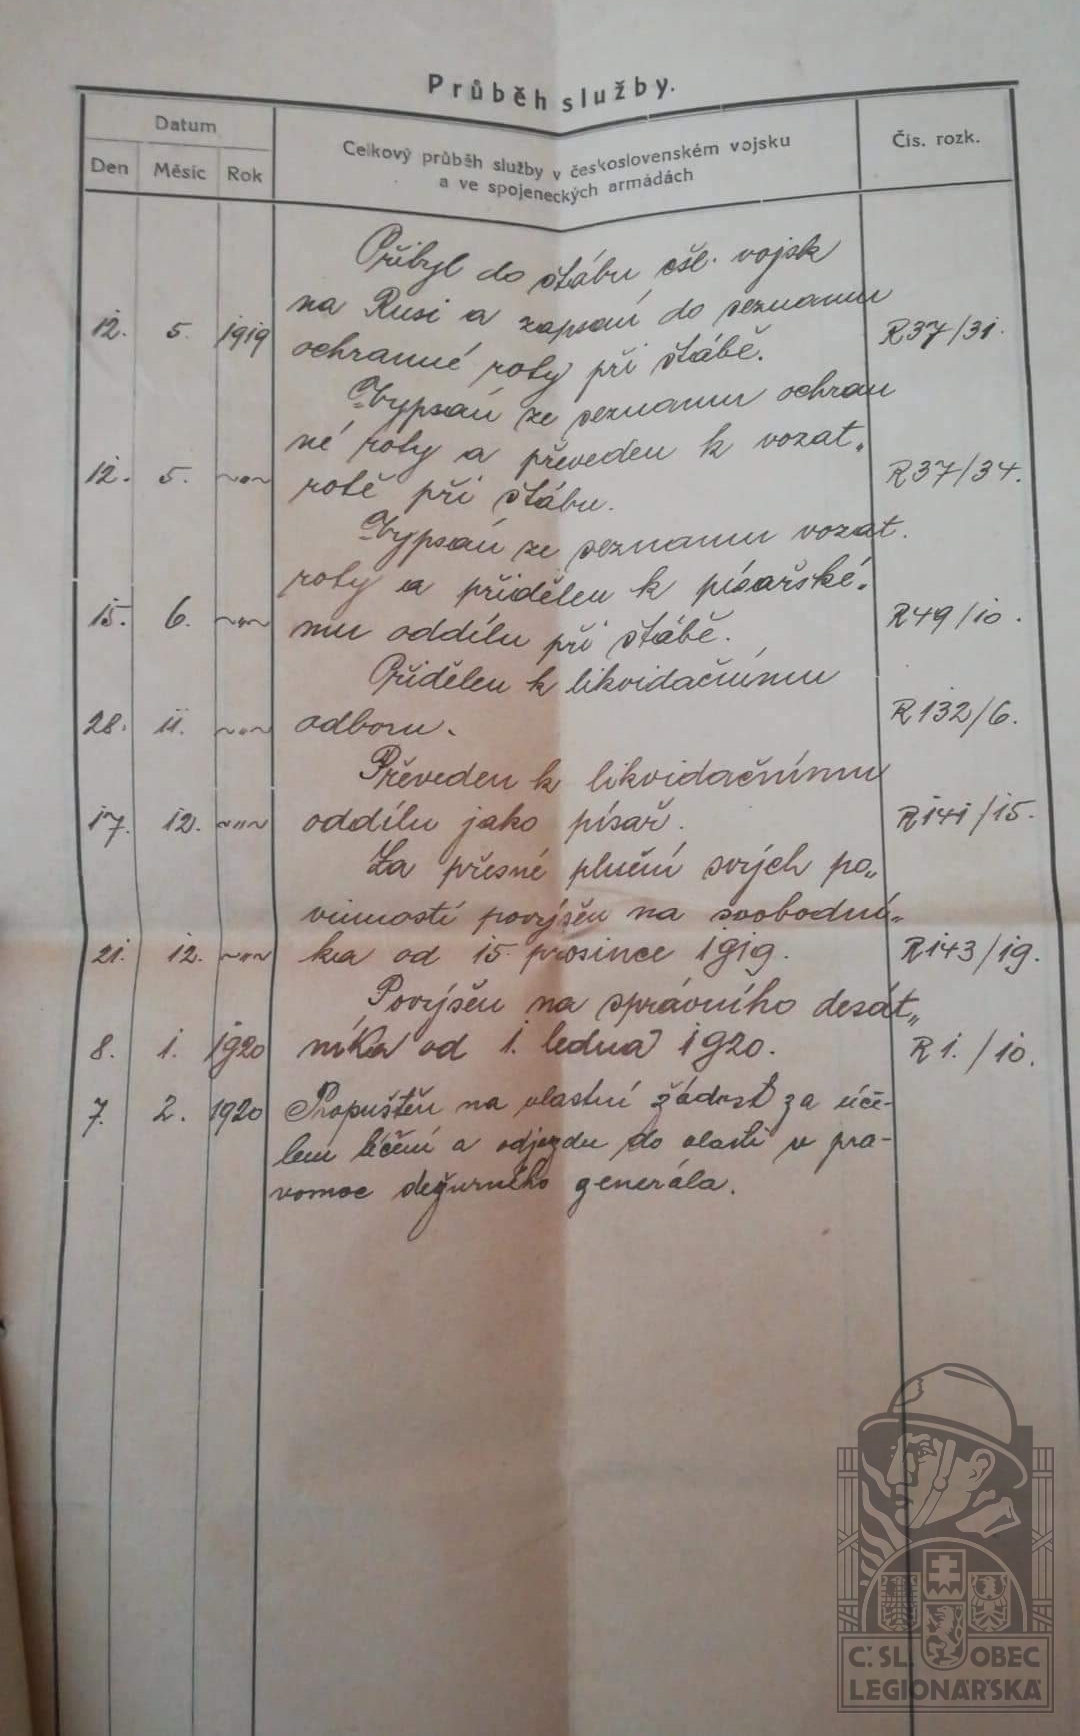 Průběh služby.
Datum
Celkový průběh služby v československém vojsku
a ve spojeneckých armádách
Čís. rozk.
Den Měsíc Rok
Přibyl do štábu čsl. vojsk
na Rusi a zapsán do seznamu
12. 5. 1919 ochranné roty při štábě. R37/31.
Vypsán ze seznamu ochran
né roty a převeden k vozat„
12. 5. ~"~ rotě při štábu. R37/34.
Vypsán ze seznamu vozat.
roty a přidělen k písařské„
15. 6. ~"~ mu oddílu při štábě. R49/10.
Přidělen k likvidačnímu
28. 11. ~"~ odboru. R132/6.
Převeden k likvidačnímu
17. 12. ~"~ oddílu jako písař. R141/15.
Za přesné plnění svých po„
vinností povýšen na svobodní„
21. 12. ~"~ ka od 15. prosince 1919. R143/19.
Povýšen na správního desát„
8. 1. 1920 níka od 1. ledna 1920. R1./10.
7. 2. 1920 Propuštěn na vlastní žádost za úče-
lem léčení a odjezdu do vlasti v pra-
vomoc dežurného generála.
Č. SL. OBEC
LEGIONÁŘSKÁ